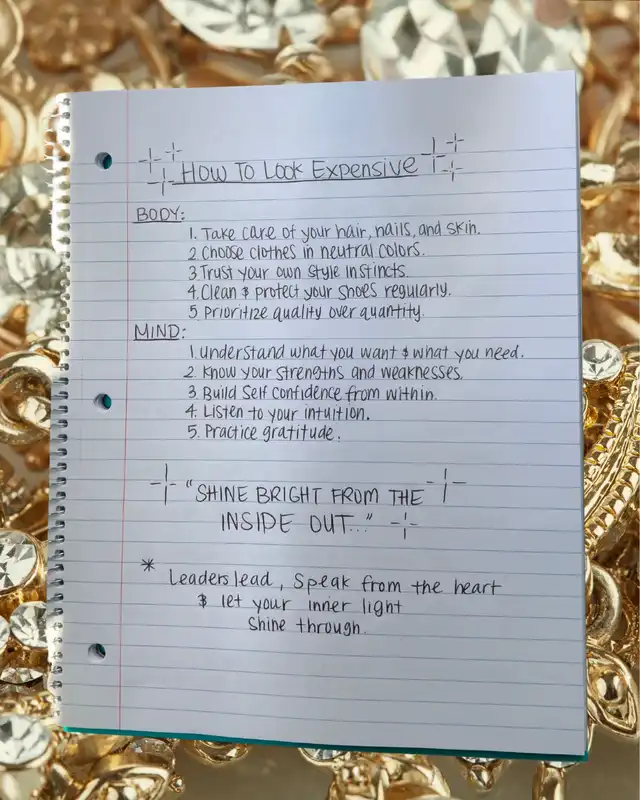 How To Look Expensive
BODY:
1. Take care of your hair, nails, and skin.
2 Choose clothes in neutral colors.
3 Trust your own style instincts.
4. Clean & protect your shoes regularly.
5 Prioritize quality over quantity.
MIND:
1. Understand what you want & what you need.
2. Know your strengths and weaknesses.
3. Build Self confidence from within.
4. Listen to your intuition.
5. Practice gratitude.
"SHINE BRIGHT FROM THE
INSIDE OUT..."
* Leaders lead, Speak from the heart
& let your inner light
Shine through.